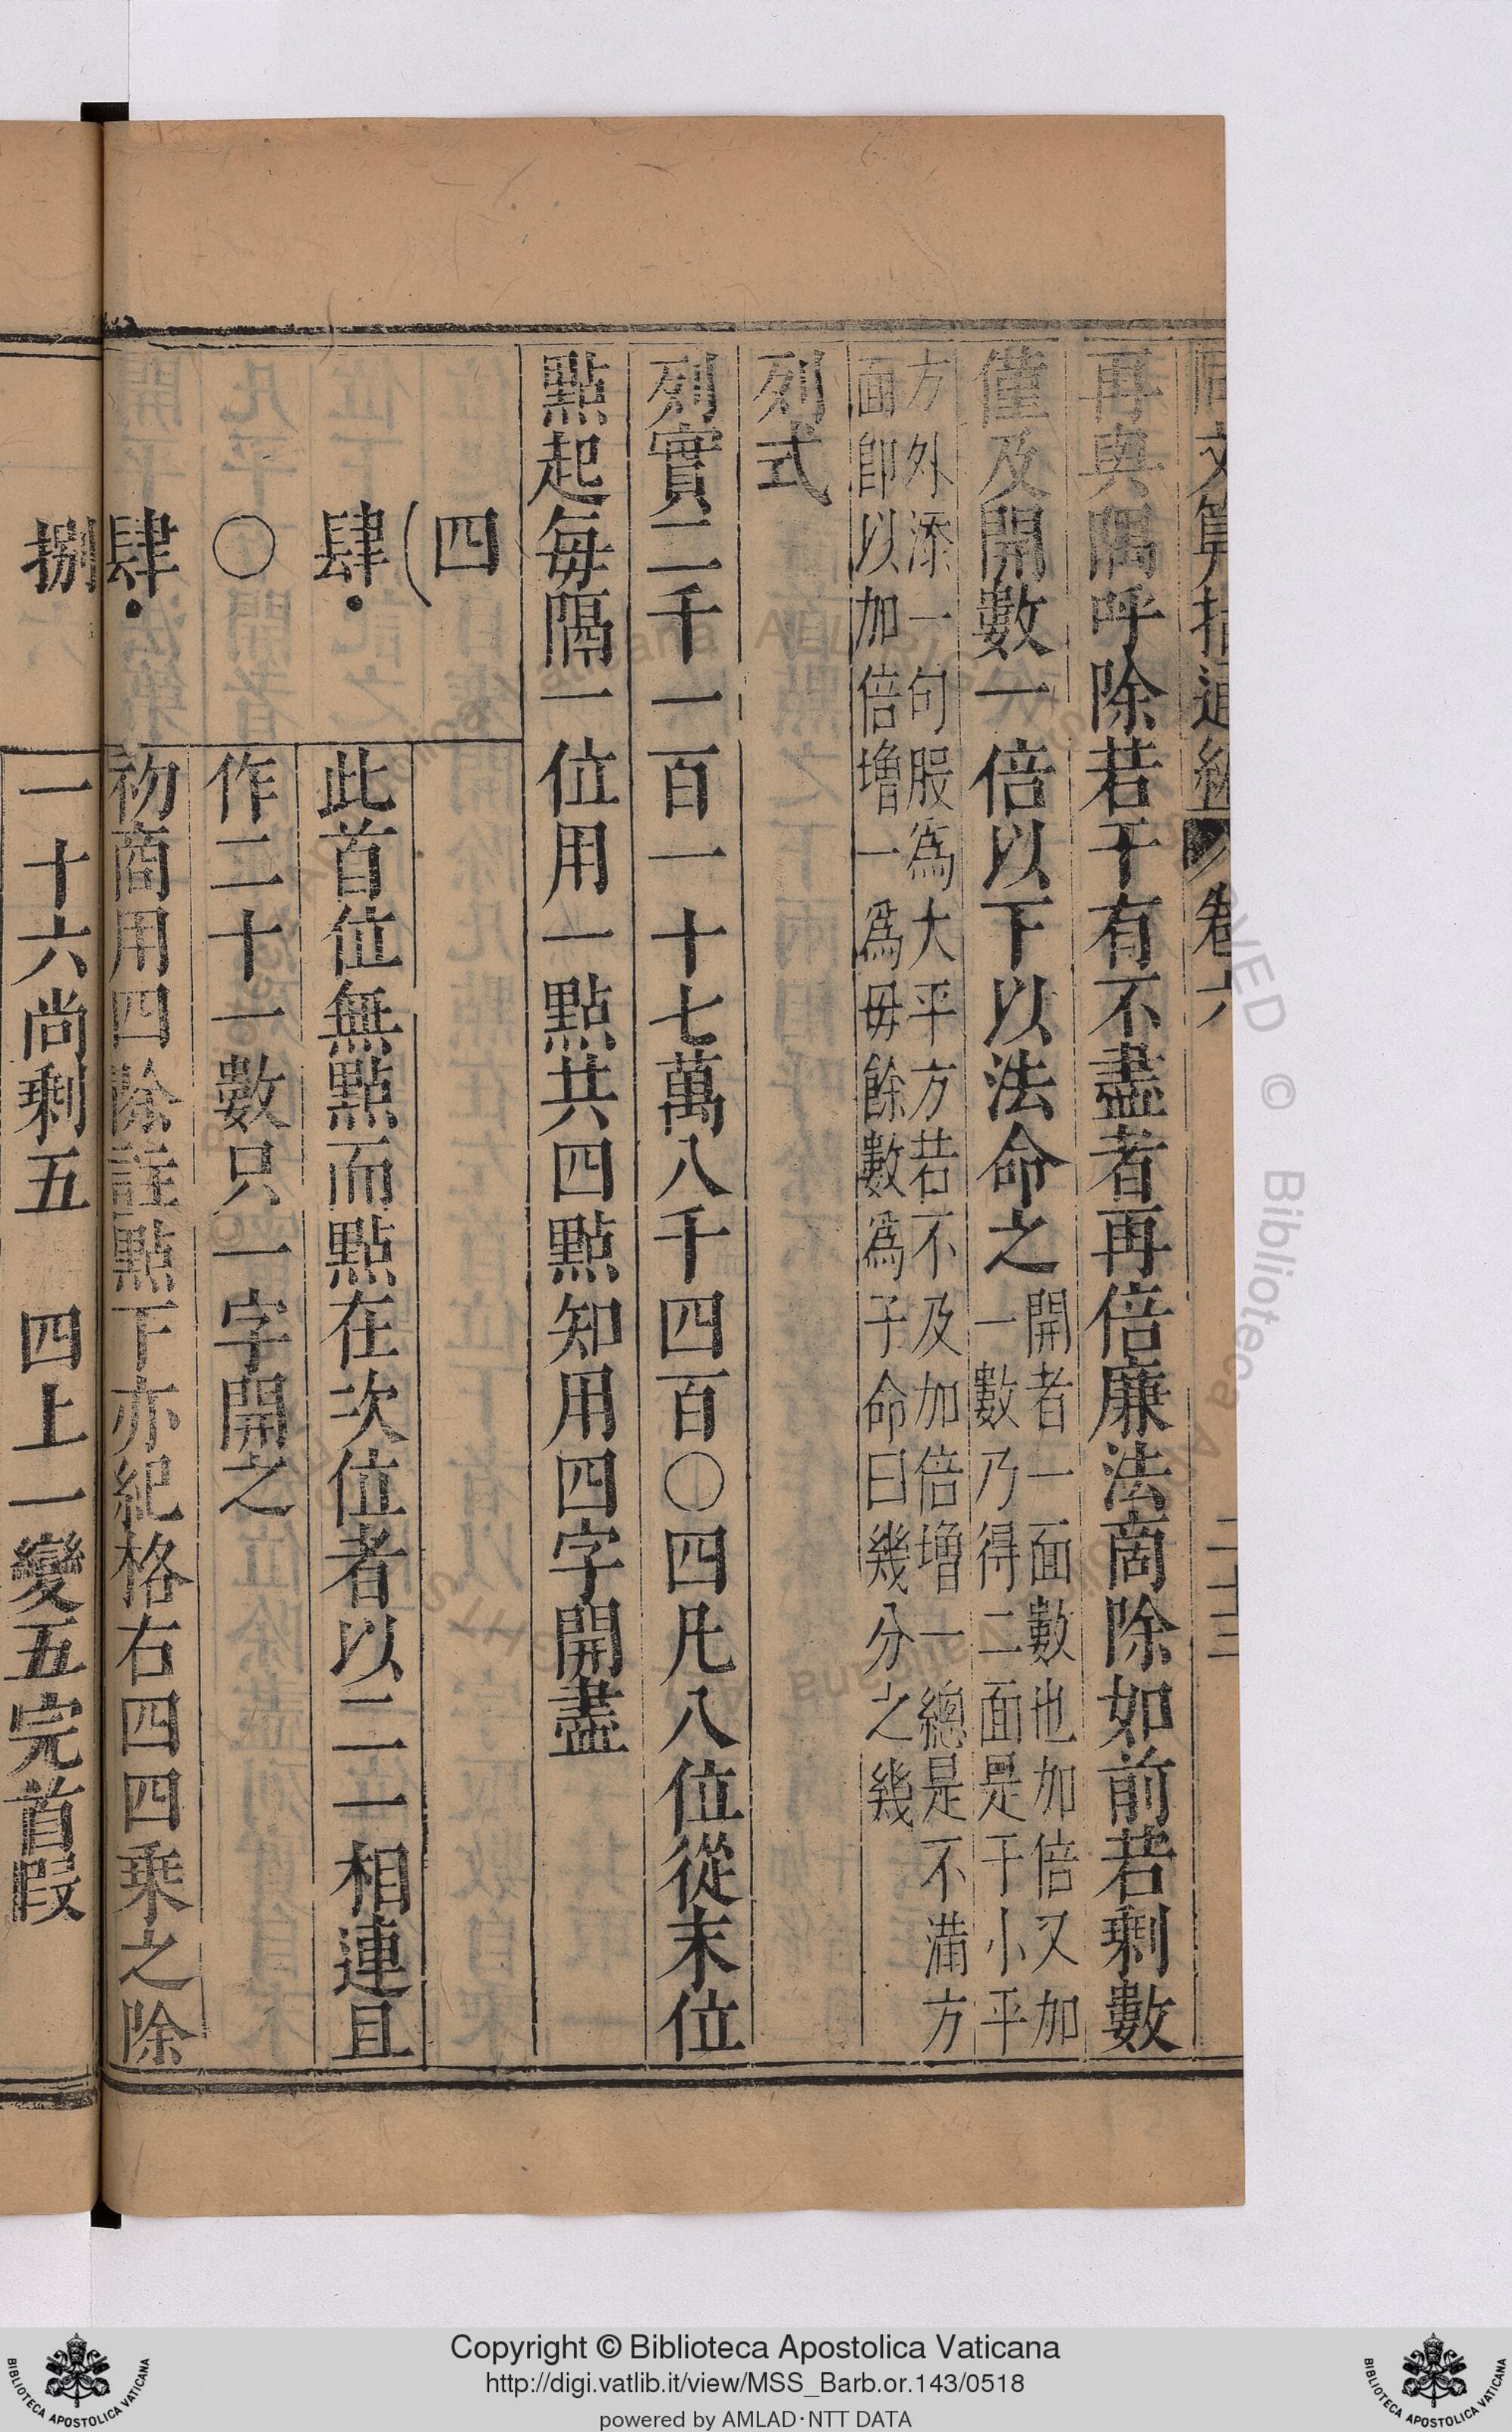 同文算指通編 卷六 二十三
再與隅呼除若干有不盡者再倍廉法商除如前若剩數
僅及開數一倍以下以法命之
開者一面數也加倍又加
一數乃得二面是于小平
方外添一句股為大平方若不及加倍增一總是不滿方
面卽以加倍增一為毋餘數為子命曰幾分之幾
列式
列實二千一百一十七萬八千四百〇四凡八位從末位
點起每隔一位用一點共四點知用四字開盡
四
肆 此首位無點而點在次位者以二一相連且
〇 作二十一數只一字開之
肆 初商用四除註點下亦紀格右四四乗之除
捌 一十六尚剩五 四上一變五完首叚
Copyright © Biblioteca Apostolica Vaticana
http://digi.vatlib.it/view/MSS_Barb.or.143/0518
powered by AMLAD·NTT DATA
BIBLIOTECA APOSTOLICA VATICANA
BIBLIOTECA APOSTOLICA VATICANA